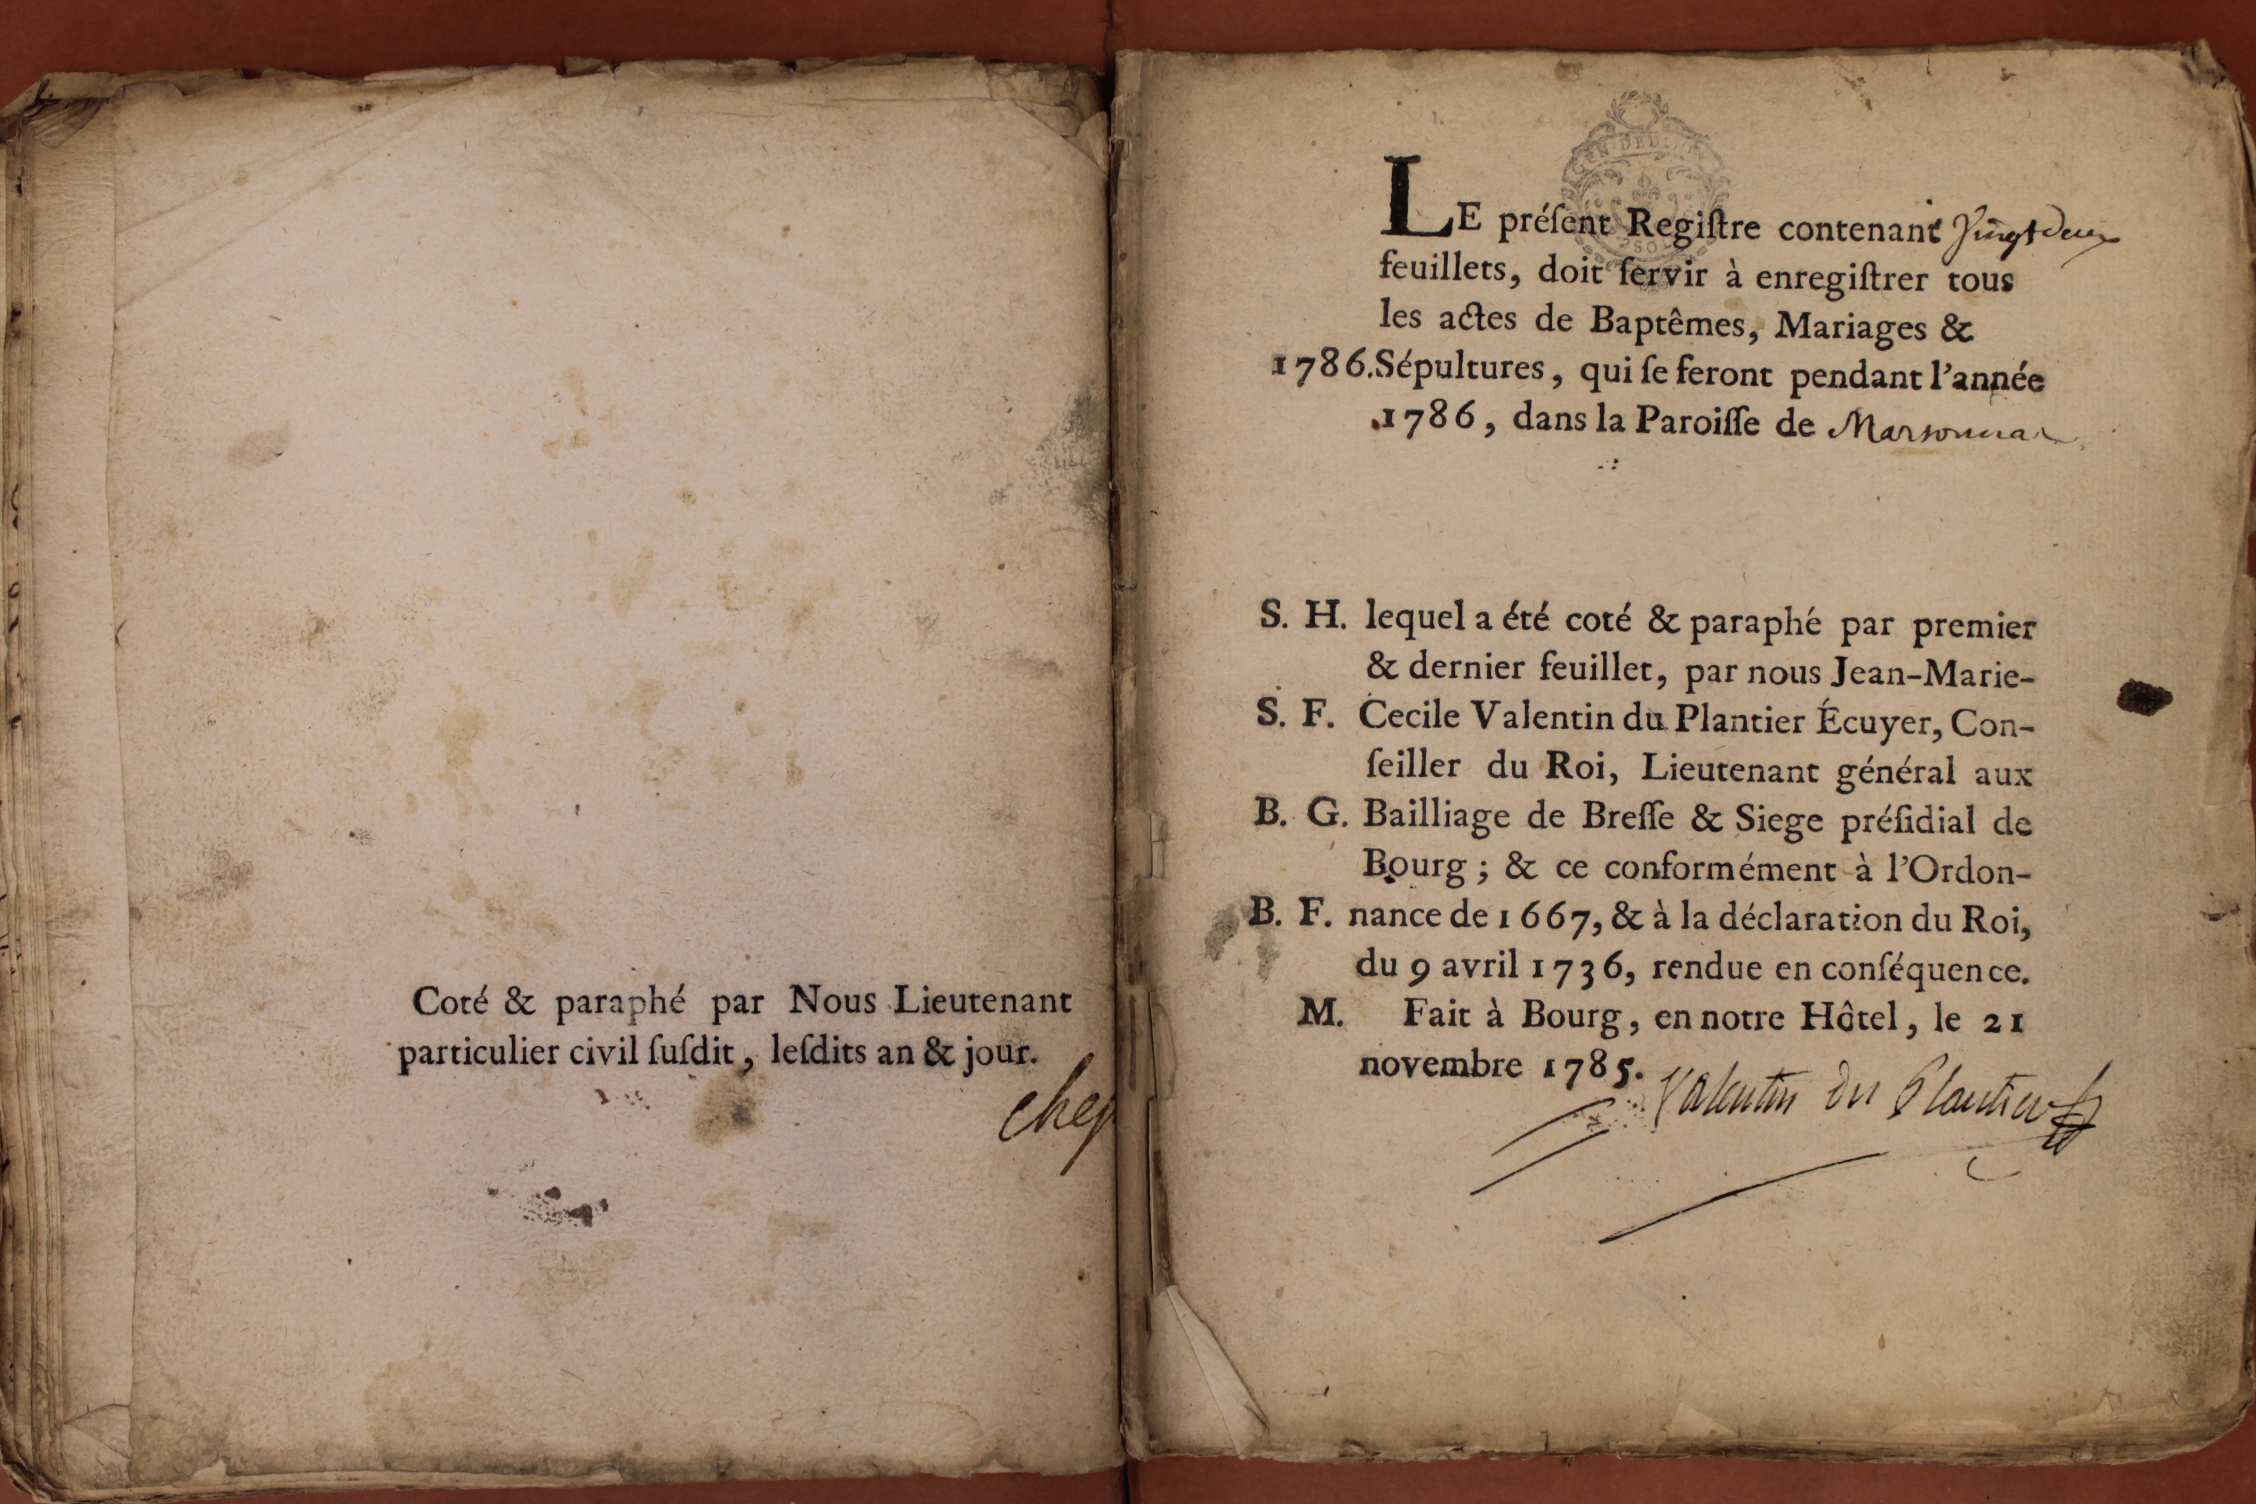 Coté & paraphé par Nous Lieutenant
particulier civil ſuſdit, leſdits an & jour.
chep
LE préſent Regiſtre contenant Vingt deux
feuillets, doit ſervir à enregiſtrer tous
les actes de Baptêmes, Mariages &
1786. Sépultures, qui ſe feront pendant l'année
1786, dans la Paroiſſe de Marsonnax
S. H. lequel a été coté & paraphé par premier
& dernier feuillet, par nous Jean-Marie-
S. F. Cecile Valentin du Plantier Écuyer, Con-
ſeiller du Roi, Lieutenant général aux
B. G. Bailliage de Breſſe & Siege préſidial de
Bourg ; & ce conformément à l'Ordon-
B. F. nance de 1667, & à la déclaration du Roi,
du 9 avril 1736, rendue en conſéquence.
M. Fait à Bourg, en notre Hôtel, le 21
novembre 1785.
Valentin du Plantier